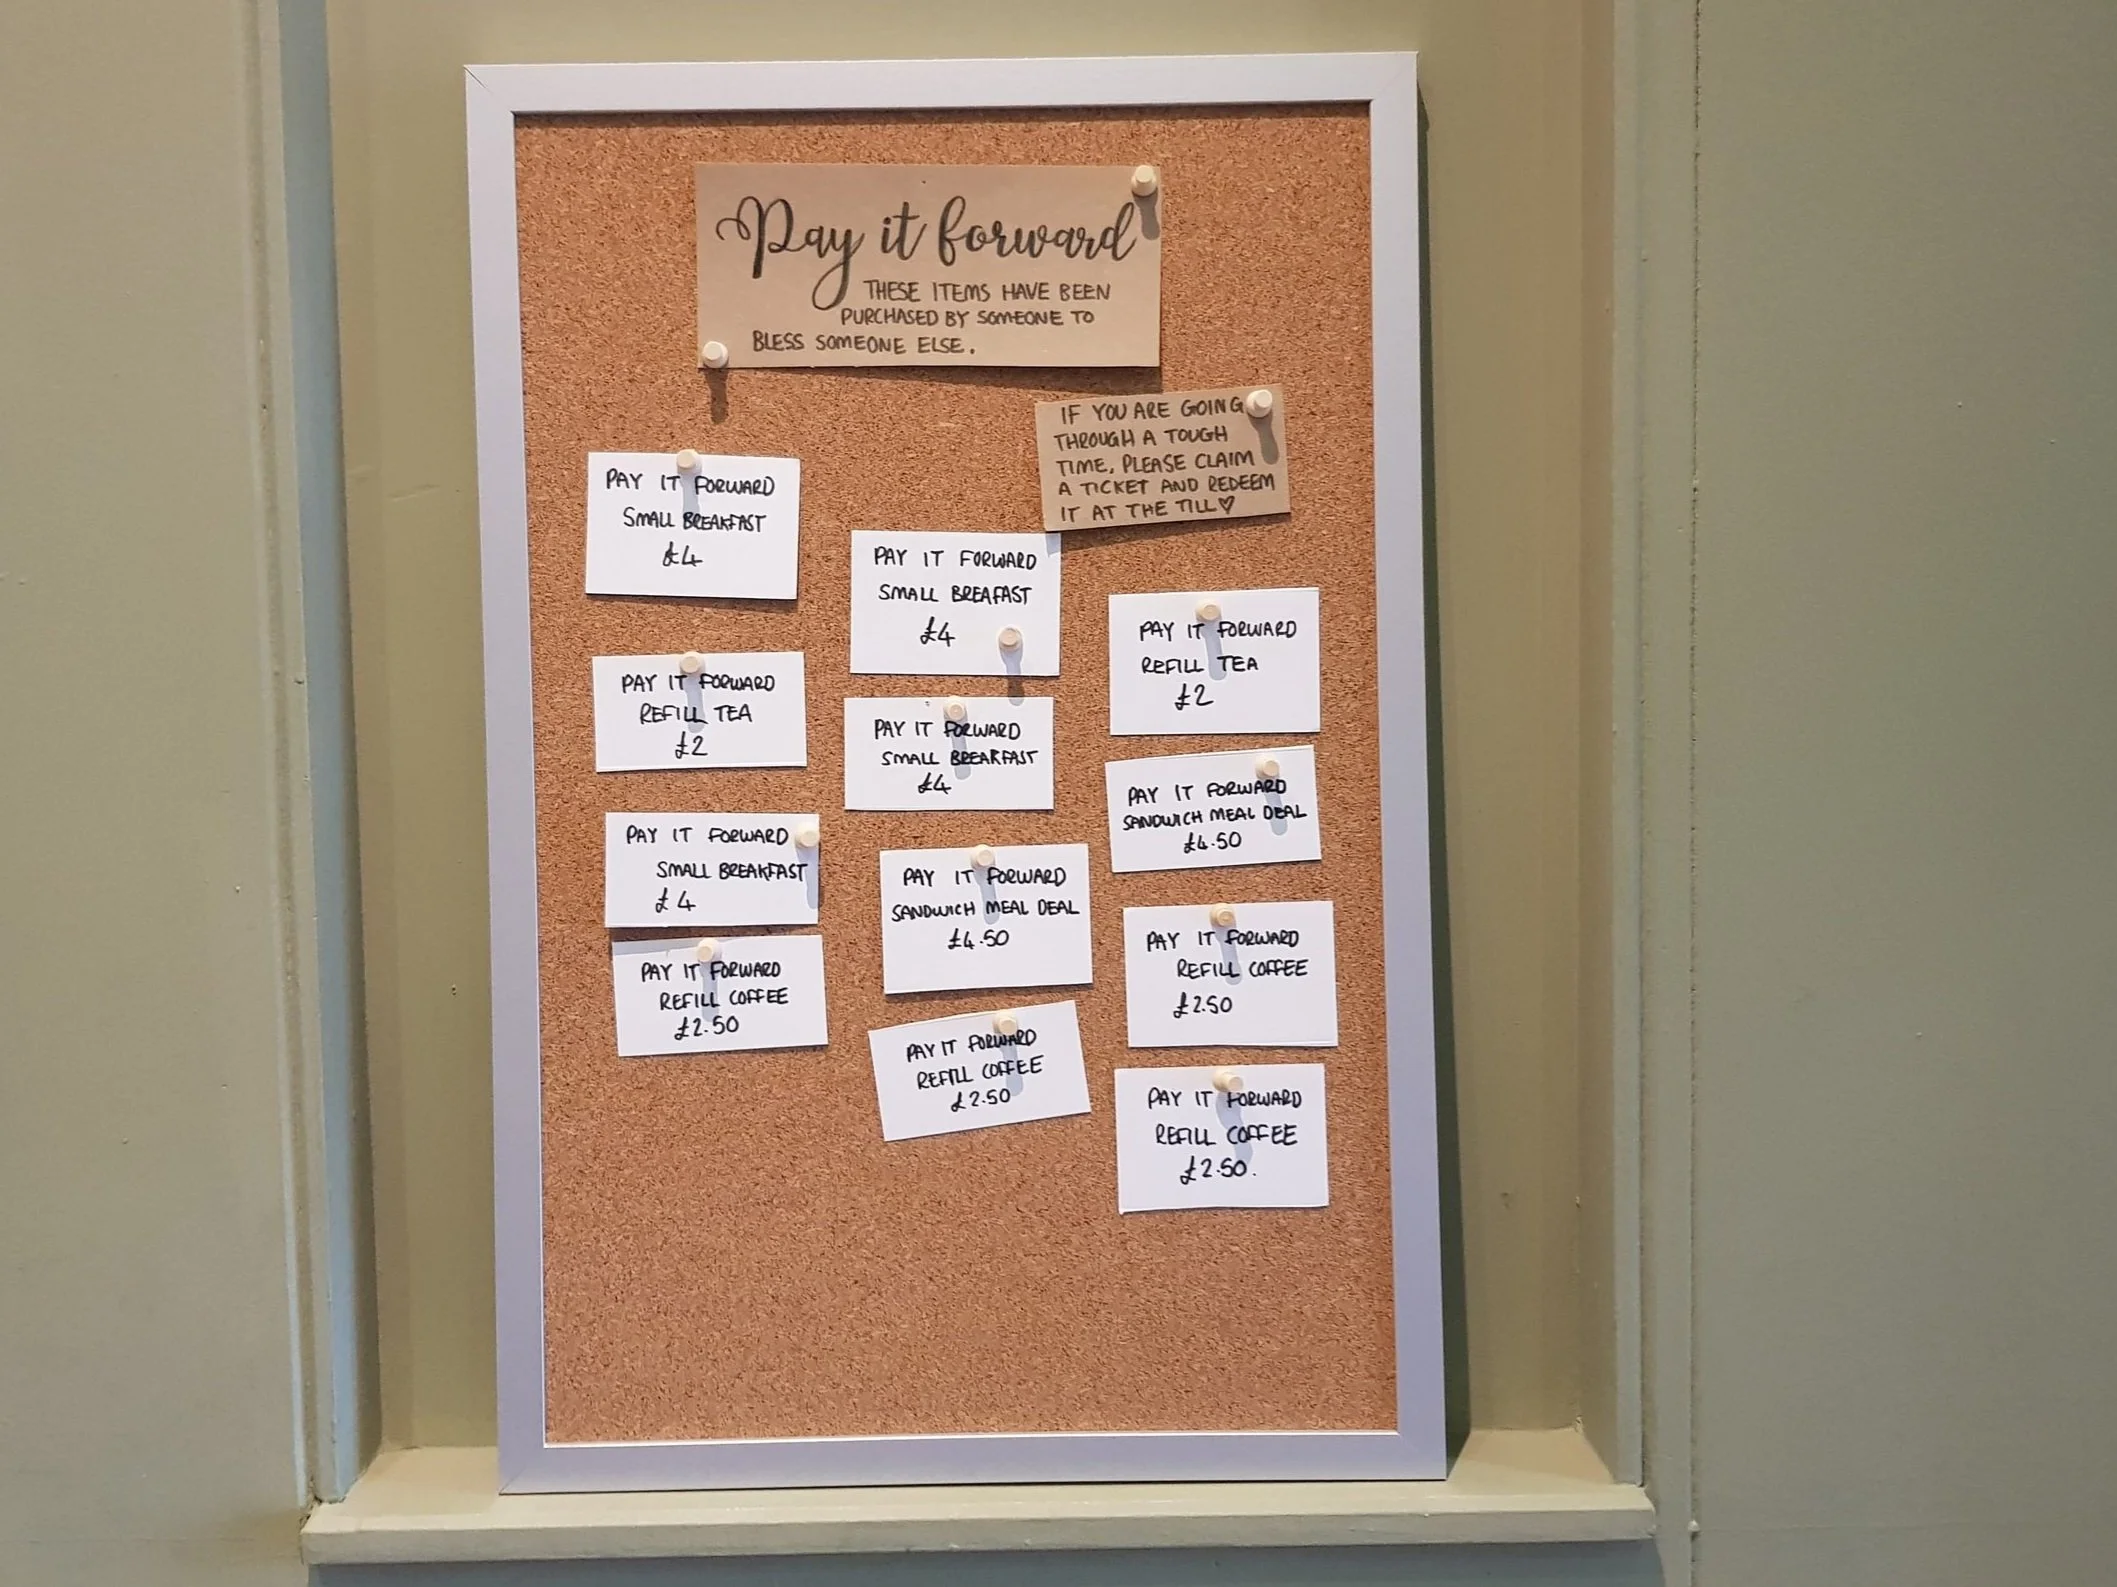 Pay it forward
THESE ITEMS HAVE BEEN
PURCHASED BY SOMEONE TO
BLESS SOMEONE ELSE.
IF YOU ARE GOING
THROUGH A TOUGH
TIME, PLEASE CLAIM
A TICKET AND REDEEM
IT AT THE TILL♡
PAY IT FORWARD
SMALL BREAKFAST
£4
PAY IT FORWARD
REFILL TEA
£2
PAY IT FORWARD
SMALL BREAKFAST
£4
PAY IT FORWARD
REFILL COFFEE
£2.50
PAY IT FORWARD
SMALL BREAFAST
£4
PAY IT FORWARD
SMALL BREAKFAST
£4
PAY IT FORWARD
SANDWICH MEAL DEAL
£4.50
PAY IT FORWARD
REFILL COFFEE
£2.50
PAY IT FORWARD
REFILL TEA
£2
PAY IT FORWARD
SANDWICH MEAL DEAL
£4.50
PAY IT FORWARD
REFILL COFFEE
£2.50
PAY IT FORWARD
REFILL COFFEE
£2.50.